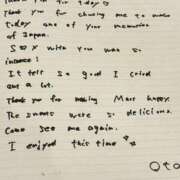 Thank you for today
Thank you for chosing me to make
today one of your memories
of Japan.
S♡x with you was so
insane!
It felt so good I cried
out a lot.
Thank you for making Mars happy.
were so delicious.
Come see me again.
I enjoyed this time